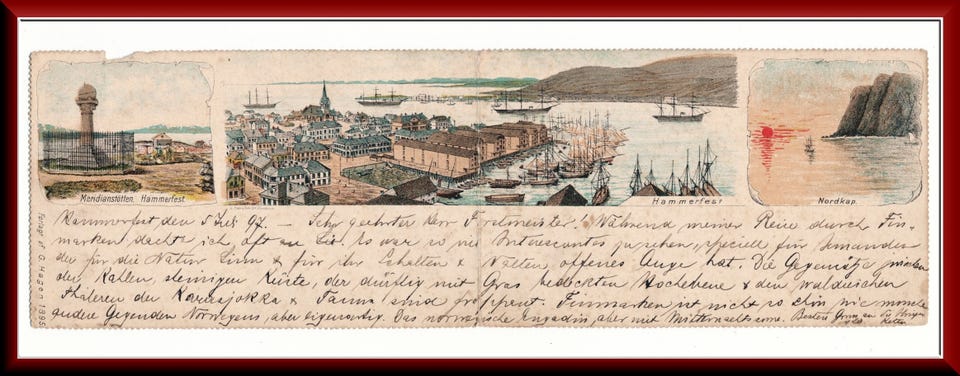 Meridianstötten, Hammerfest.
Hammerfest
Nordkap.
Forlag af G. Hagen 1895
Hammerfest den 5 Juli 97. — Sehr geehrter Herr Forstmeister! Während meiner Reise durch Fin-
marken dachte ich oft an Sie. Es war so viel Interessantes zu sehen, speciell für Jemanden
der für die Natur Sinn & für ihr Schalten & Walten offenes Auge hat. Die Gegensätze zwischen
der kahlen, steinigen Küste, der dürftig mit Gras bedeckten Hochebene & den waldreichen
Thälern der Karasjokka & Tanna sind frappant. Finmarken ist nicht so schön wie manche
andere Gegenden Norwegens, aber eigenartig. Das norwegische Engadin, aber mit Mitternachtssonne. Besten Gruss an